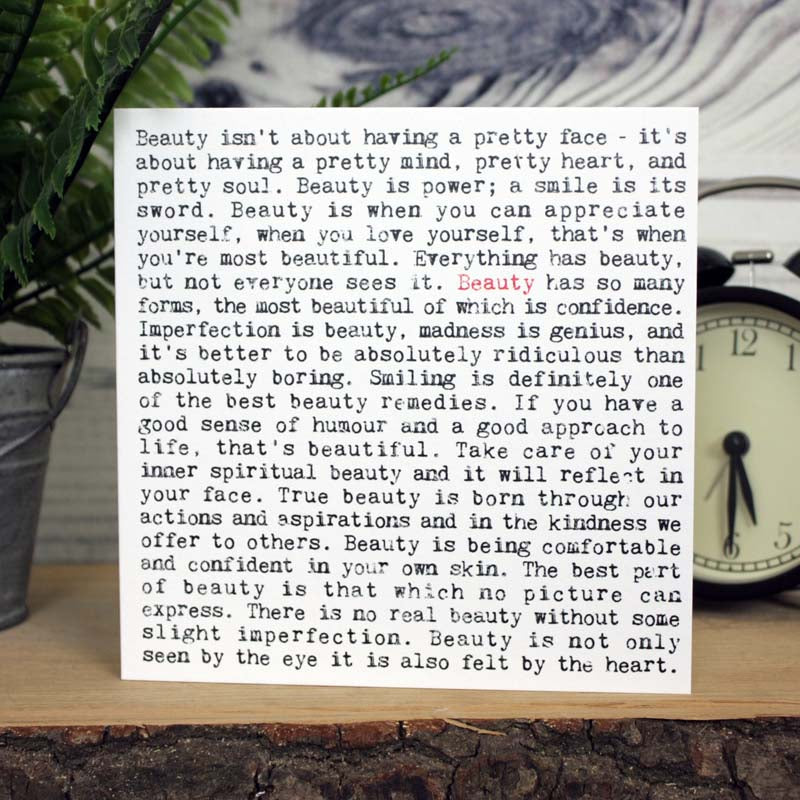 Beauty isn't about having a pretty face - it's
about having a pretty mind, pretty heart, and
pretty soul. Beauty is power; a smile is its
sword. Beauty is when you can appreciate
yourself, when you love yourself, that's when
you're most beautiful. Everything has beauty,
but not everyone sees it. Beauty has so many
forms, the most beautiful of which is confidence.
Imperfection is beauty, madness is genius, and
it's better to be absolutely ridiculous than
absolutely boring. Smiling is definitely one
of the best beauty remedies. If you have a
good sense of humour and a good approach to
life, that's beautiful. Take care of your
inner spiritual beauty and it will reflect in
your face. True beauty is born through our
actions and aspirations and in the kindness we
offer to others. Beauty is being comfortable
and confident in your own skin. The best part
of beauty is that which no picture can
express. There is no real beauty without some
slight imperfection. Beauty is not only
seen by the eye it is also felt by the heart.
11 12 1
5
6